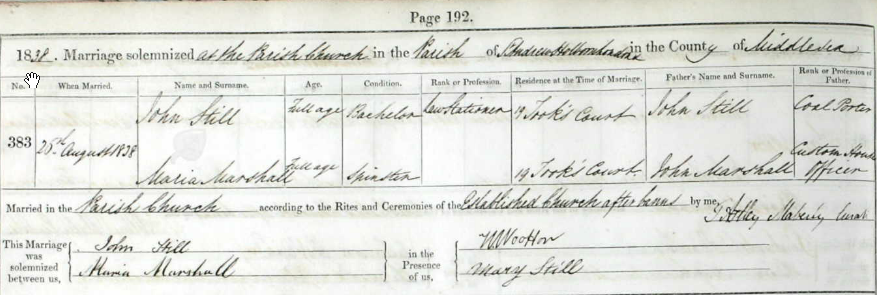 Page 192.
1838. Marriage solemnized at the Parish Church in the Parish of St Andrew Holborn London in the County of Middlesex
No. When Married. Name and Surname. Age. Condition. Rank or Profession. Residence at the Time of Marriage. Father's Name and Surname. Rank or Profession of Father.
John Still Full age Bachelor Law Stationer 19 Took's Court John Still Coal Porter
383 26th August 1838
Maria Marshall Full age Spinster 19 Took's Court John Marshall Custom House Officer
Married in the Parish Church according to the Rites and Ceremonies of the Established Church after banns by me, Curate
This Marriage was solemnized between us, John Still in the Presence of us, Wootton
Maria Marshall Mary Still